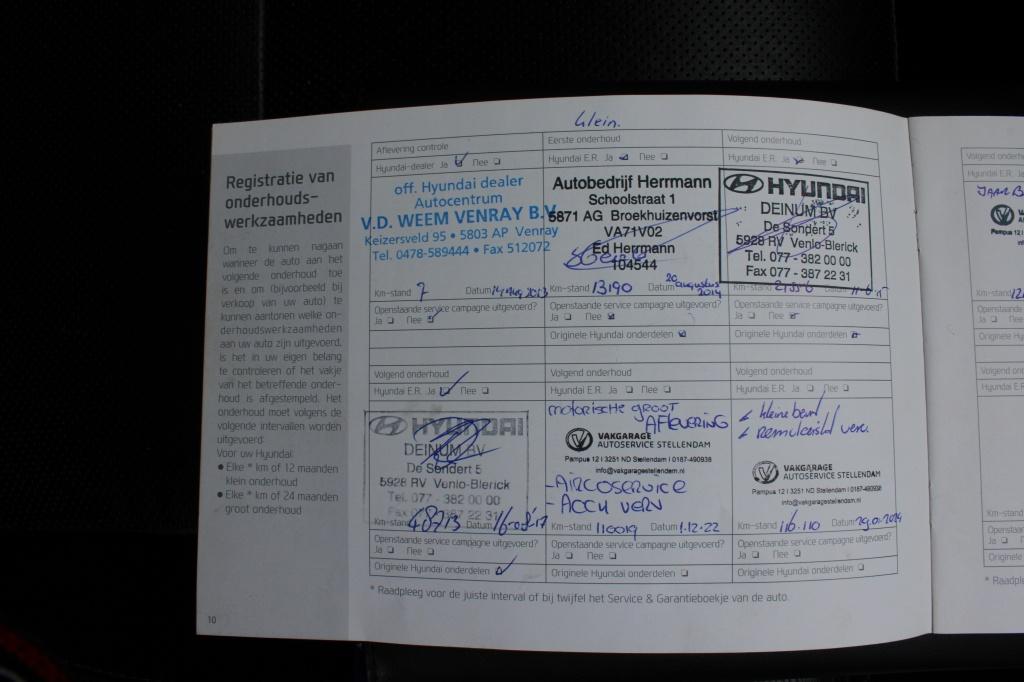 Klein.
Registratie van
onderhouds-
werkzaamheden
Om te kunnen nagaan
wanneer de auto aan het
volgende onderhoud toe
is en om (bijvoorbeeld bij
verkoop van uw auto) te
kunnen aantonen welke on-
derhoudswerkzaamheden
aan uw auto zijn uitgevoerd,
is het in uw eigen belang
te controleren of het vakje
van het betreffende onder-
houd is afgestempeld. Het
onderhoud moet volgens de
volgende intervallen worden
uitgevoerd:
Voor uw Hyundai:
● Elke * km of 12 maanden
klein onderhoud
● Elke * km of 24 maanden
groot onderhoud
10
Aflevering controle
Hyundai-dealer Ja Nee
off. Hyundai dealer
Autocentrum
V.D. WEEM VENRAY B.V.
Keizersveld 95 • 5803 AP Venray
Tel. 0478-589444 • Fax 512072
Km-stand 7 Datum
Openstaande service campagne uitgevoerd?
Ja Nee
Eerste onderhoud
Hyundai E.R. Ja Nee
Autobedrijf Herrmann
Schoolstraat 1
5871 AG Broekhuizenvorst
VA71V02
Ed Herrmann
104544
Km-stand 13190 Datum 20 augustus 2014
Openstaande service campagne uitgevoerd?
Ja Nee
Originele Hyundai onderdelen
Volgend onderhoud
Hyundai E.R. Ja Nee
HYUNDAI
DEINUM BV
De Sondert 5
5928 RV Venlo-Blerick
Tel. 077 - 382 00 00
Fax 077 - 387 22 31
Km-stand Datum
Openstaande service campagne uitgevoerd?
Ja Nee
Originele Hyundai onderdelen
Volgend onderhoud
Hyundai E.R. Ja Nee
HYUNDAI
DEINUM BV
De Sondert 5
5928 RV Venlo-Blerick
Tel. 077 - 382 00 00
Km-stand 48713 Datum
Openstaande service campagne uitgevoerd?
Ja Nee
Originele Hyundai onderdelen
Volgend onderhoud
Hyundai E.R. Ja Nee
motorische groot
AFLEVERING
VAKGARAGE
AUTOSERVICE STELLENDAM
Pampus 12 I 3251 ND Stellendam I 0187-490938
info@vakgaragestellendam.nl
- AIRCOSERVICE
- ACCU VERV
Km-stand 110019 Datum 1.12.22
Openstaande service campagne uitgevoerd?
Ja Nee
Originele Hyundai onderdelen
Volgend onderhoud
Hyundai E.R. Ja Nee
kleine beurt
Remvloeistof verv.
VAKGARAGE
AUTOSERVICE STELLENDAM
Pampus 12 I 3251 ND Stellendam I 0187-490938
info@vakgaragestellendam.nl
Km-stand 116.110 Datum 29.01.2024
Openstaande service campagne uitgevoerd?
Ja Nee
Originele Hyundai onderdelen
* Raadpleeg voor de juiste interval of bij twijfel het Service & Garantieboekje van de auto.
Volgend onderhoud
Hyundai E.R.
Km-stand
Openstaande
Ja
Originele Hy
Hyundai E.R.
Km-stand
Openstaande
Originele